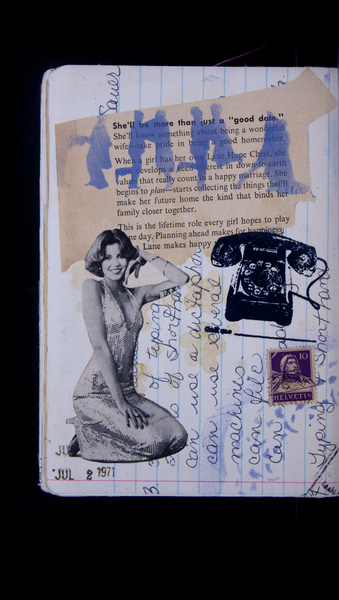 She'll be more than just a "good date."
She'll know something about being a wonderful
wife—take pride in being a good homemaker.
When a girl has her own Lane Hope Chest, she
develops a keen interest in down-to-earth
values that really count in a happy marriage. She
begins to plan—starts collecting the things that'll
make her future home the kind that binds her
family closer together.
This is the lifetime role every girl hopes to play
day. Planning ahead makes for happiness.
Lane makes happy
10
HELVETIA
JUL 2 1971
3.
of typing
of Shorthand
can use a dictaphone
can use several
machines
can file
can
typing
Shorthand